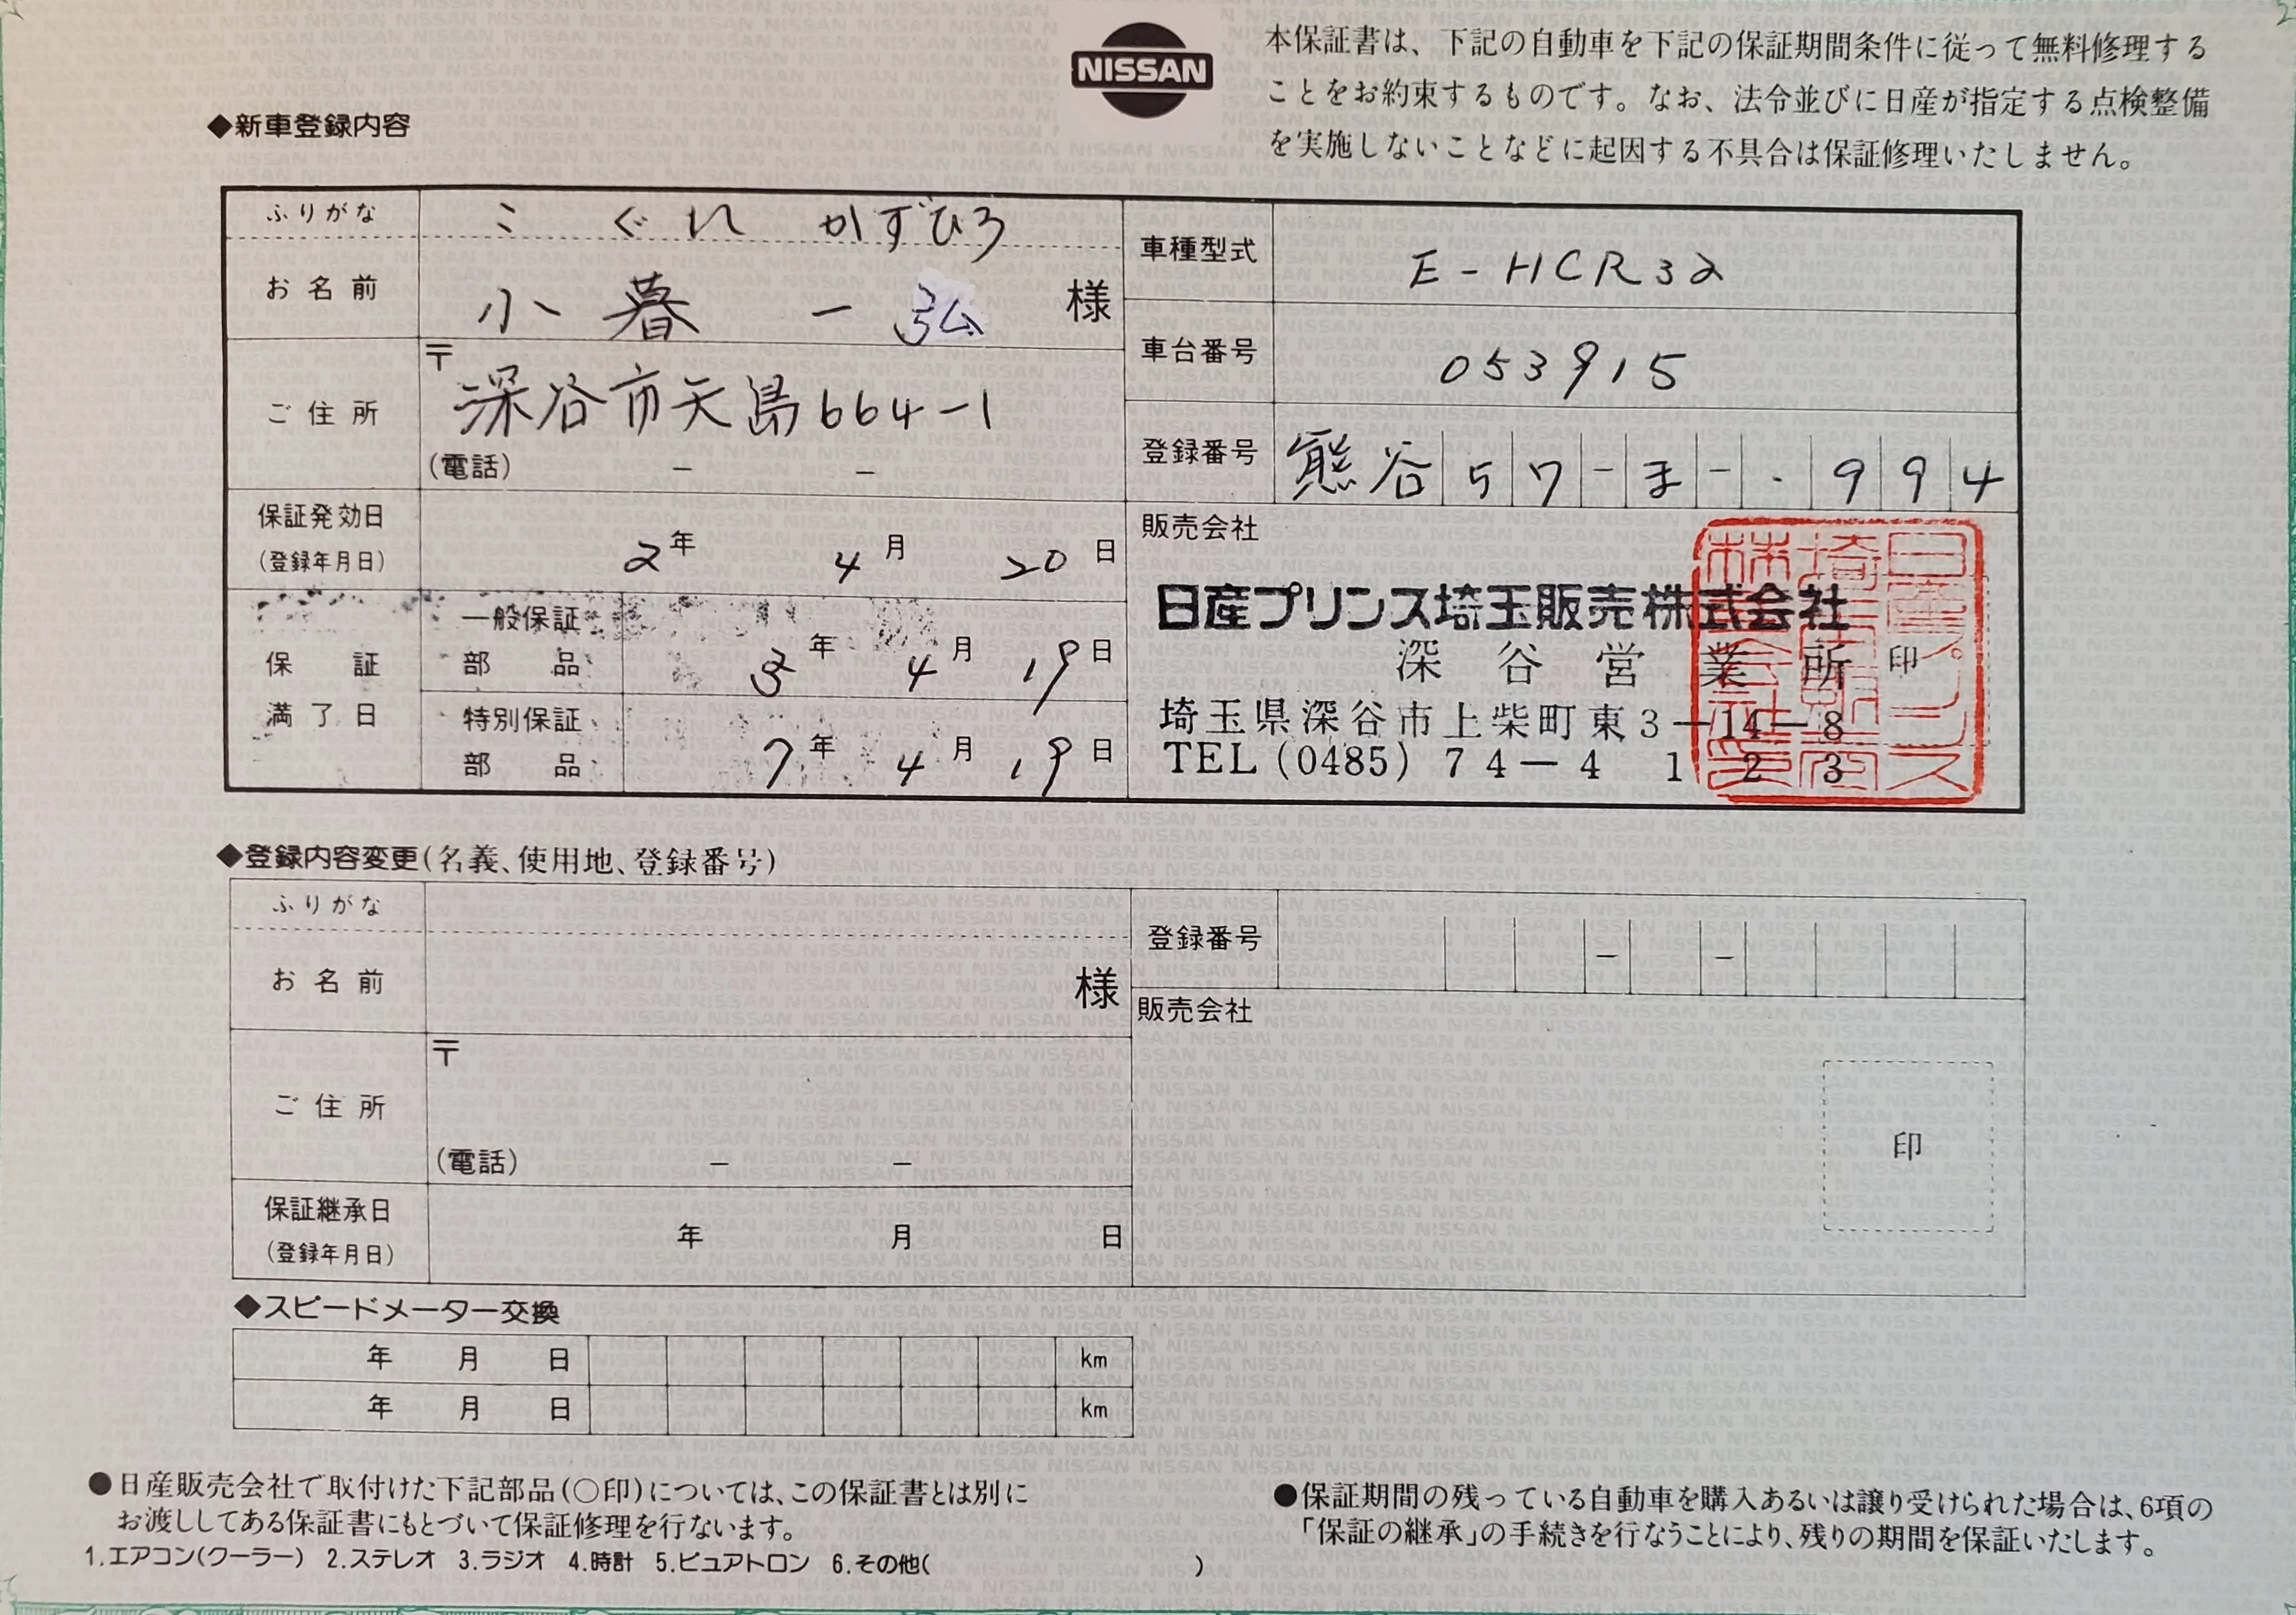 NISSAN
本保証書は、下記の自動車を下記の保証期間条件に従って無料修理する
ことをお約束するものです。なお、法令並びに日産が指定する点検整備
を実施しないことなどに起因する不具合は保証修理いたしません。
◆新車登録内容
ふりがな こぐれ かずひろ
お名前 小暮 一弘 様
ご住所 〒
深谷市矢島664-1
(電話) - -
保証発効日
(登録年月日)
2年 4月 20日
保証満了日
一般保証部品 3年 4月 19日
特別保証部品 7年 4月 19日
車種型式 E-HCR32
車台番号 053915
登録番号 熊谷57-ま-・994
販売会社
日産プリンス埼玉販売株式会社
深谷営業所 印
埼玉県深谷市上柴町東3-14-8
TEL (0485) 74-4123
◆登録内容変更(名義、使用地、登録番号)
ふりがな
お名前 様
ご住所 〒
(電話) - -
保証継承日
(登録年月日)
年 月 日
登録番号 - -
販売会社
印
◆スピードメーター交換
年 月 日 km
年 月 日 km
●日産販売会社で取付けた下記部品(○印)については、この保証書とは別に
お渡ししてある保証書にもとづいて保証修理を行ないます。
1.エアコン(クーラー) 2.ステレオ 3.ラジオ 4.時計 5.ピュアトロン 6.その他( )
●保証期間の残っている自動車を購入あるいは譲り受けられた場合は、6項の
「保証の継承」の手続きを行なうことにより、残りの期間を保証いたします。